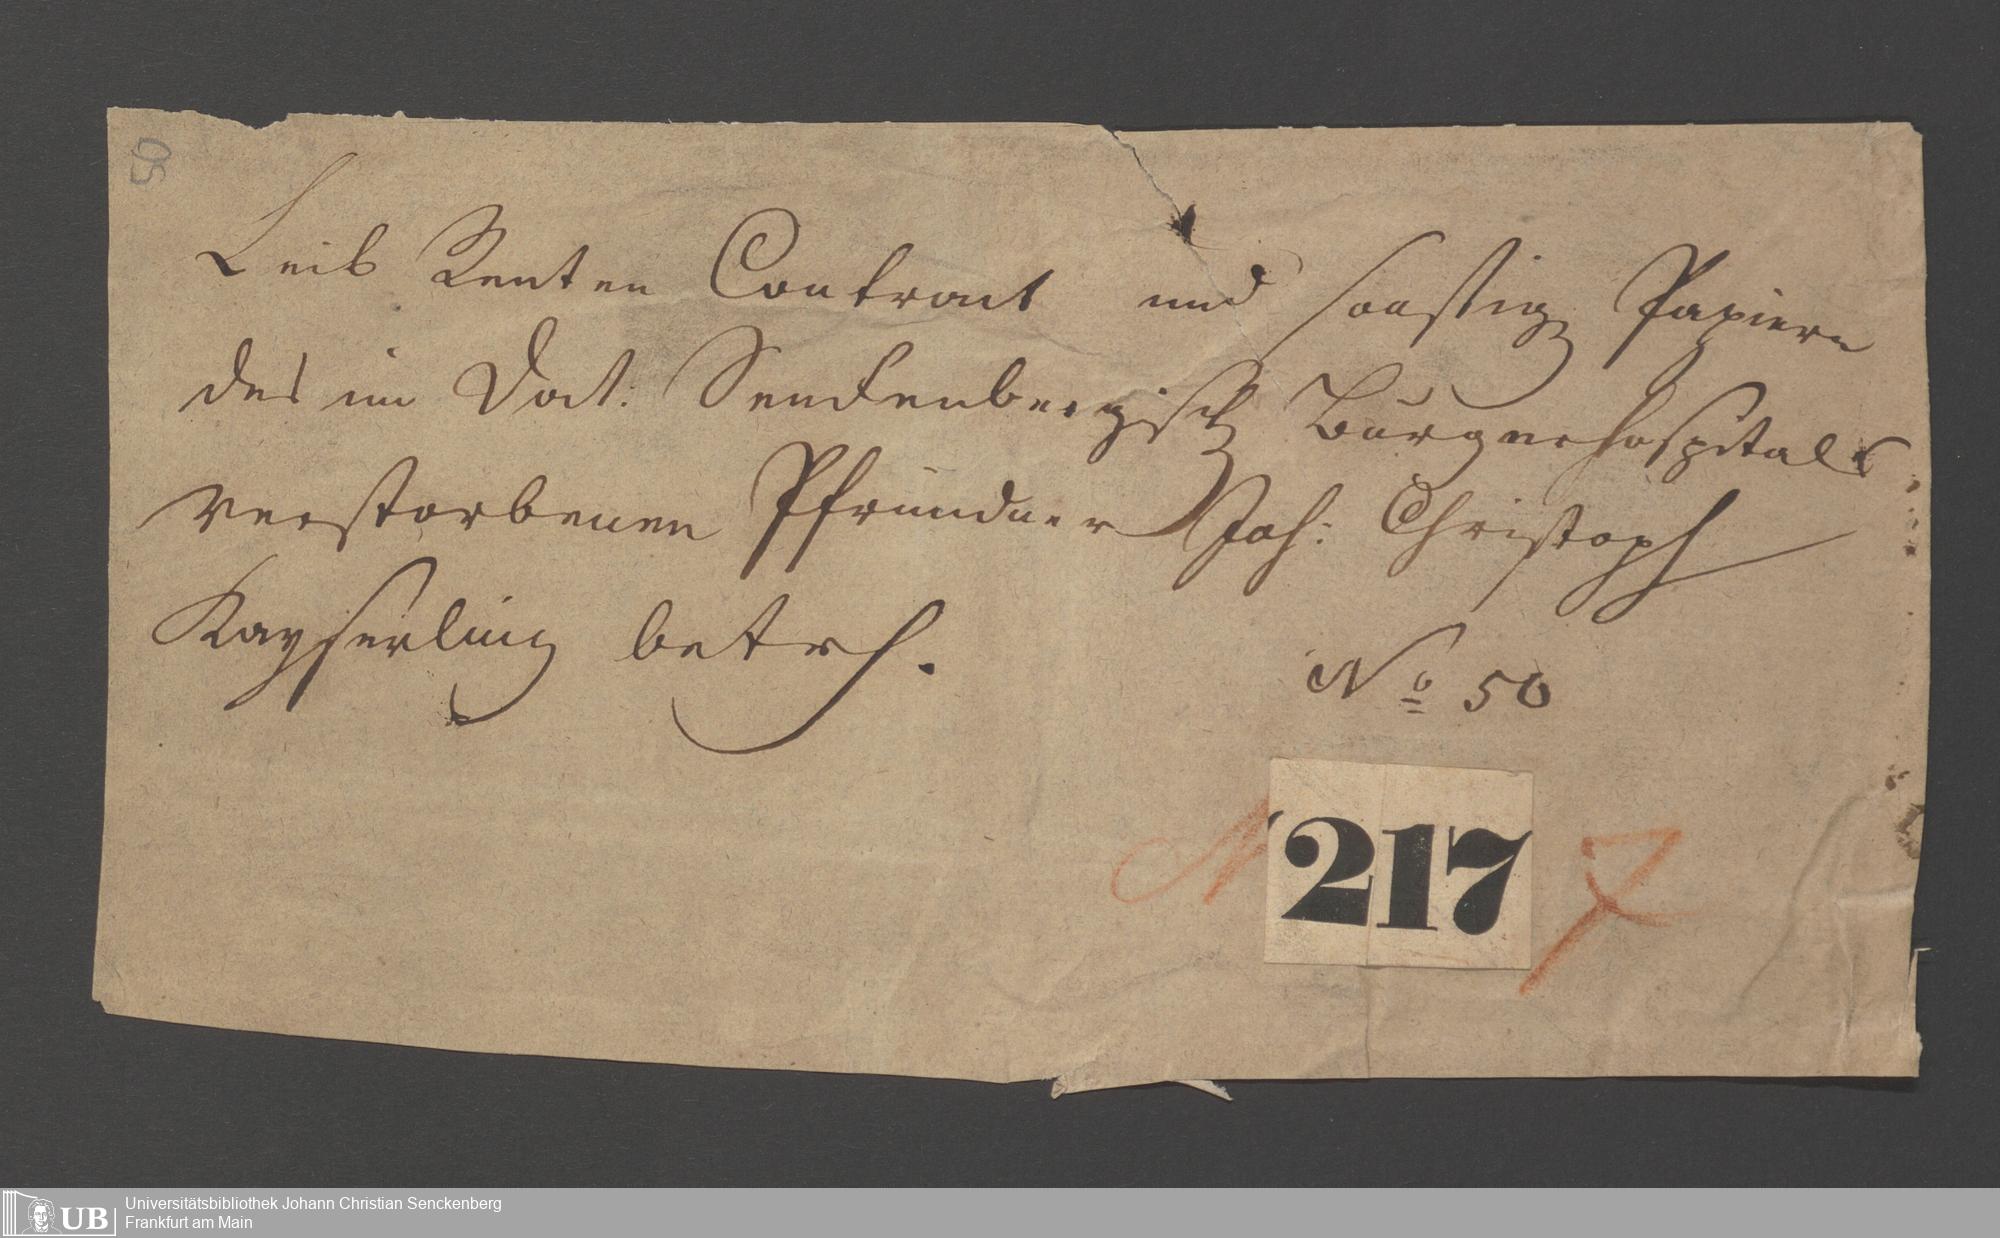 50
Leib Renten Contract und sonstig Papiere
des im Doct. Senckenbergisch Burgerhospitals
verstorbenen Pfründner Joh: Christoph
Kayserling betrf.
No 50
N 217 7
UB Universitätsbibliothek Johann Christian Senckenberg
Frankfurt am Main